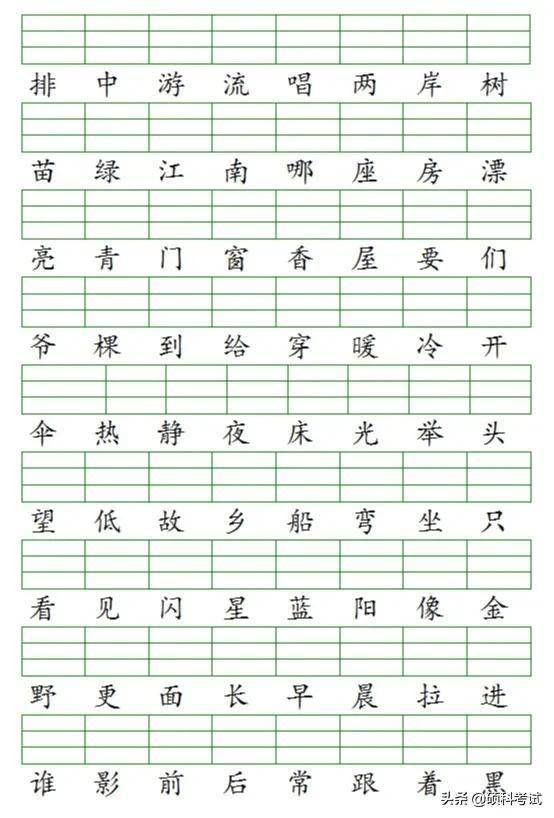 排 中 游 流 唱 两 岸 树
苗 绿 江 南 哪 座 房 漂
亮 青 门 窗 香 屋 要 们
爷 棵 到 给 穿 暖 冷 开
伞 热 静 夜 床 光 举 头
望 低 故 乡 船 弯 坐 只
看 见 闪 星 蓝 阳 像 金
野 更 面 长 早 晨 拉 进
谁 影 前 后 常 跟 着 黑
头条 @硕科考试